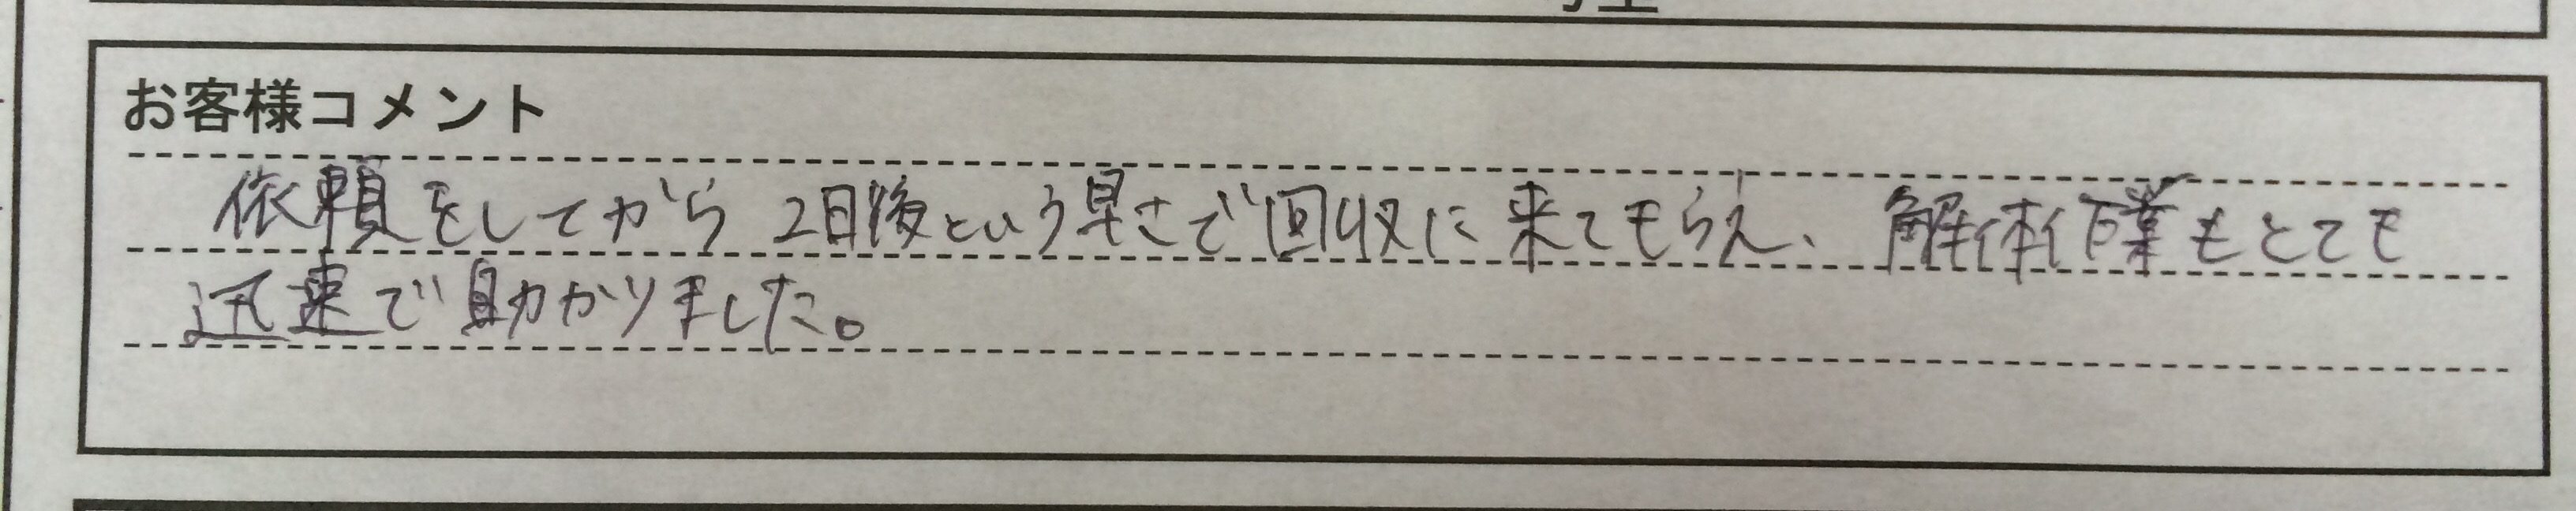 お客様コメント
依頼をしてから2日後という早さで回収に来てもらえ、解体作業もとても
迅速で助かりました。